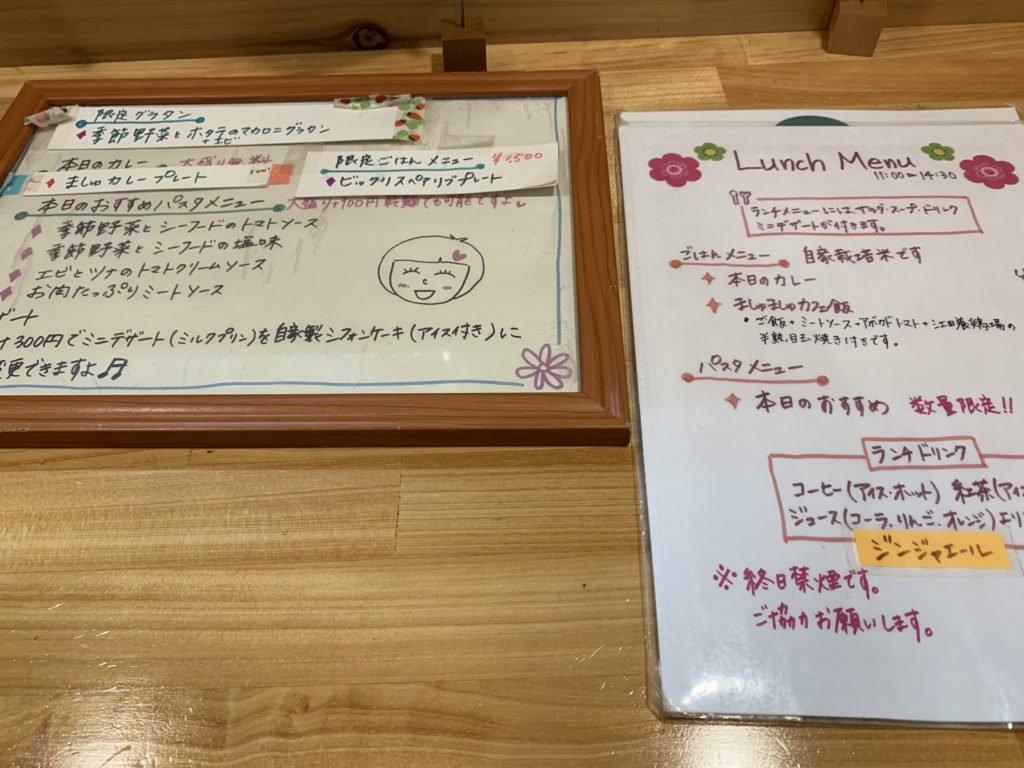 限定グラタン
季節野菜とホタテのマカロニグラタン
+エビ
本日のカレー 大盛り無料
ましゅカレープレート
限定ごはんメニュー ¥1,500
ビックリスペアリブプレート
本日のおすすめパスタメニュー 大盛り+100円 乾麺でも可能ですよ
季節野菜とシーフードのトマトソース
季節野菜とシーフードの塩味
エビとツナのトマトクリームソース
お肉たっぷりミートソース
ザート
300円でミニデザート(ミルクプリン)を自家製シフォンケーキ(アイス付き)に
変更できますよ♫
Lunch Menu
11:00~14:30
ランチメニューにはサラダ・スープ・ドリンク
ミニデザートが付きます。
ごはんメニュー 自家栽培米です
本日のカレー
ましゅましゅカフェ飯
・ご飯+ミートソース+アボカドトマト+江田養鶏場の
半熟目玉焼き付きです。
パスタメニュー
本日のおすすめ 数量限定!!
ランチドリンク
コーヒー(アイス・ホット) 紅茶(アイ
ジュース(コーラ、りんご、オレンジ)
ジンジャエール
※終日禁煙です。
ご協力お願いします。